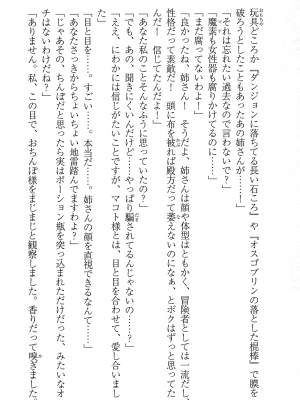 玩具どころか『ダンジョンに落ちてる長い石ころ』や『オスゴブリンの落とした棍棒』で膜を
破ろうとしたこともあったあの姉さんが……！
「それは忘れたい過去なので言わないで？」
「魔素も女性器も腐りかけてるのに……」
「まだ腐ってないわよ！」
「良かったね、姉さん！　そうだよ、姉さんは顔や体型はともかく、冒険者としては一流だし、
性格だって素敵だ！　頭に布を被れば殿方だって萎えないのになぁ、とボクはずっと思ってた
んだ！　信じてたんだよ！」
「あなた私のことそんなふうに思っていたの？」
「でも、あの、聞きにくいんだけど……やっぱり騙されてるんじゃないの……？」
「ええ、にわかには信じがたいことですが、マコト様とは、目と目を合わせて、愛し合いまし
た」
「目と目を……。すごい……。本当だ……。姉さんの顔を直視できるなんて……」
「あなたさっきからちょいちょい地雷踏んでますわよ？」
「じゃあその、ちんぽだと思ったら実はポーション瓶を突っ込まれただけだった、みたいなオ
チはないわけだね？」
「ありません。私、この目で、おちんぽ様をまじまじと観察しました。香りだって嗅ぎました。